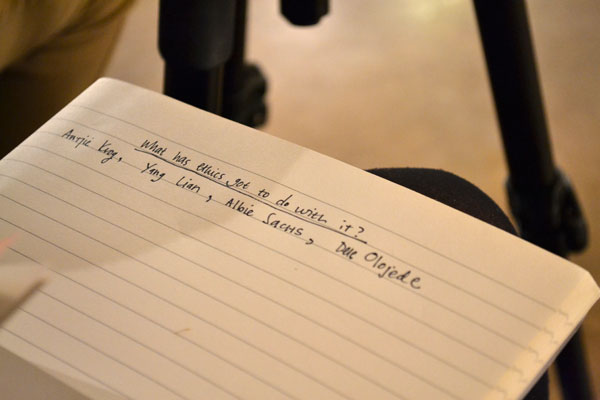 What has ethics got to do with it?
Antjie Krog, Yang Lian, Albie Sachs, Dele Olojede